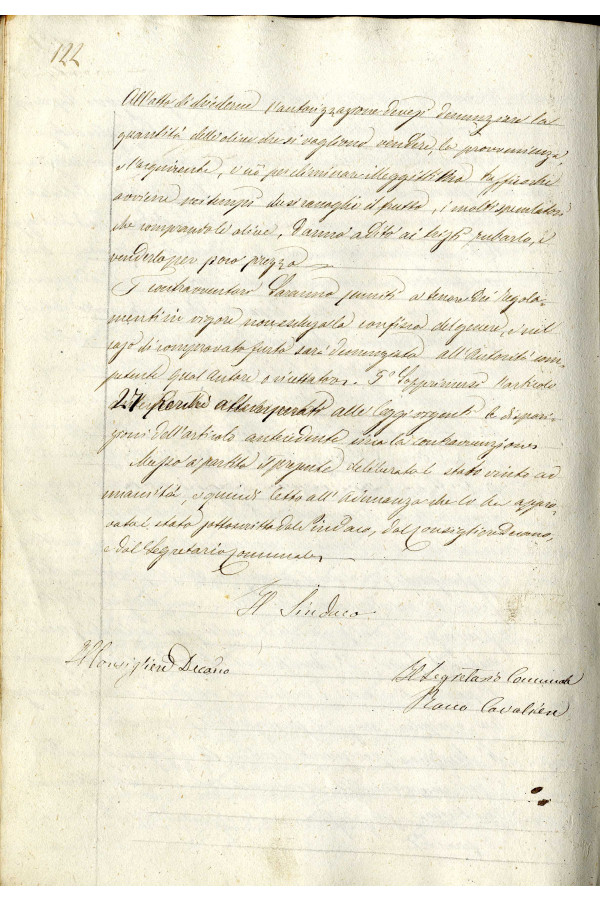 122
All'atto di chiederne l'autorizzazione devesi denunziare la
quantità delle olive che si vogliono vendere, la provenienza,
e l'acquirente, e ciò per eliminare illeggittimo che
avviene nei tempi che si raccoglie il frutto, i molti speculatori
che comprando le olive, danno adito ai tristi rubarlo, e
venderlo per poco prezzo
I contravventori saranno puniti a tenore dei regola-
menti in vigore non esclusa la confisca del genere, e nel
caso di comprovato furto sarà denunziata all'Autorità com-
petente qual autore o ricettatore. 5° Sopprimersi l'articolo
27 perchè attemperati alle leggi vigenti le disposi-
zioni dell'articolo antecedente circa la contravvenzione
Messo a partito il presente deliberato è stato vinto ad
unanimità, e quindi letto all'Adunanza che lo ha appro-
vato è stato sottoscritto dal Sindaco, dal Consigliere Decano,
e dal Segretario Comunale
Il Sindaco
Il Consigliere Decano
Il Segretario Comunale
Cavalieri